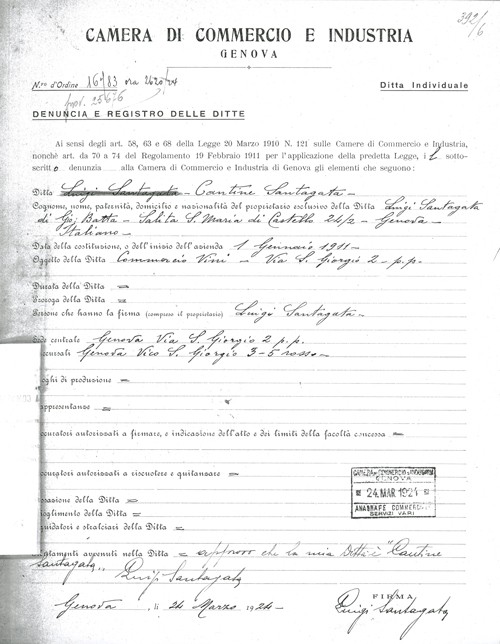 392/6
CAMERA DI COMMERCIO E INDUSTRIA
GENOVA
N.ro d'Ordine 16783 ora 262024
Ditta Individuale
DENUNCIA E REGISTRO DELLE DITTE
Ai sensi degli art. 58, 63 e 68 della Legge 20 Marzo 1910 N. 121 sulle Camere di Commercio e Industria,
nonchè art. da 70 a 74 del Regolamento 19 Febbraio 1911 per l'applicazione della predetta Legge, il sotto-
scritto denunzia alla Camera di Commercio e Industria di Genova gli elementi che seguono:
Ditta Luigi Santagata - Cantine Santagata -
Cognome, nome, paternità, domicilio e nazionalità del proprietario esclusivo della Ditta Luigi Santagata
di Gio Batta - Salita S. Maria di Castello 24/2 - Genova -
Italiano -
Data della costituzione, o dell'inizio dell'azienda 1 Gennaio 1911 -
Oggetto della Ditta Commercio Vini - Via S. Giorgio 2 - p.p.
Durata della Ditta =
Proroga della Ditta =
Persone che hanno la firma (compreso il proprietario) Luigi Santagata -
ede centrale Genova Via S. Giorgio 2 p.p.
ccursali Genova Vico S. Giorgio 3-5 rosso -
oghi di produzione =
appresentanze =
ocuratori autorizzati a firmare, e indicazione dell'atto e dei limiti della facoltà concessa =
ocuratori autorizzati a riscuotere e quitanzare =
CAMERA DI COMMERCIO E INDUSTRIA
GENOVA
24. MAR 1924
ANAGRAFE COMMERCIALE
SERVIZI VARI
essazione della Ditta =
ioglimento della Ditta =
quidatori e stralciari della Ditta =
utamenti avvenuti nella Ditta = approvo che la mia Ditta è "Cantine
Santagata" Luigi Santagata
FIRMA
Genova li 24 Marzo 1924 - Luigi Santagata